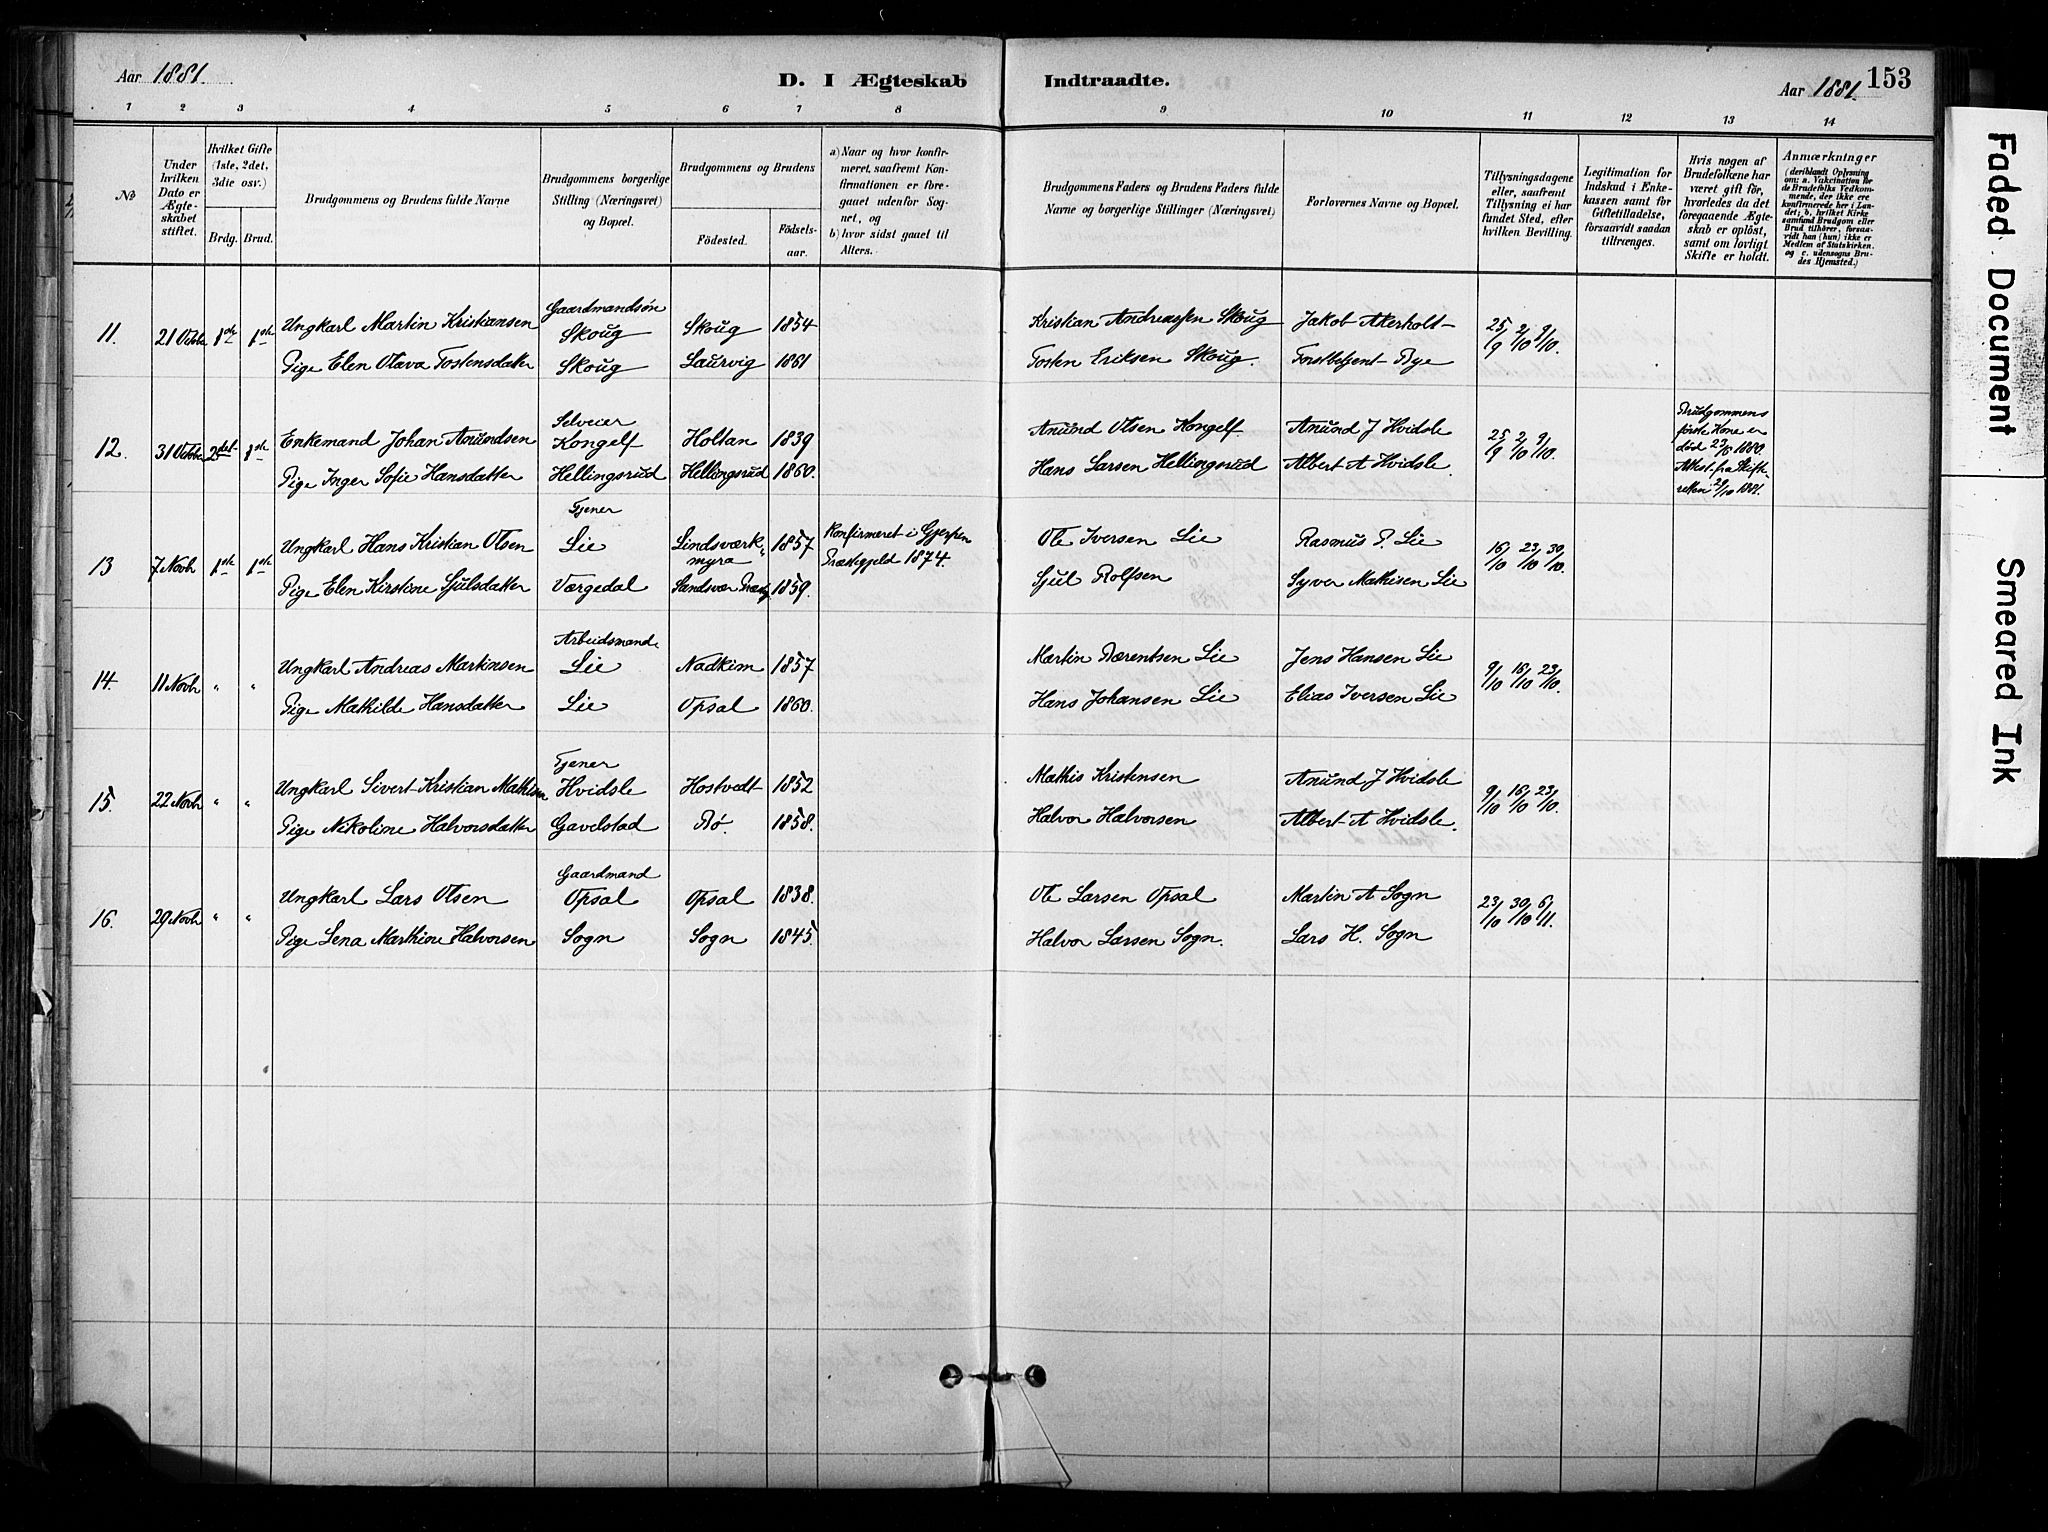 Aar 1881.
D. I Ægteskab Indtraadte.
Aar 1881.
153
1 2 3 4 5 6 7 8 9 10 11 12 13 14
No
Under hvilken Dato er Ægteskabet stiftet.
Hvilket Gifte (1ste, 2det, 3die osv.)
Brdg. Brud.
Brudgommens og Brudens fulde Navne
Brudgommens borgerlige Stilling (Næringsvei) og Bopæl.
Brudgommens og Brudens
Födested.
Födselsaar.
a) Naar og hvor konfirmeret, saafremt Konfirmationen er foregaaet udenfor Sognet, og
b) hvor sidst gaaet til Alters.
Brudgommens Faders og Brudens Faders fulde Navne og borgerlige Stillinger (Næringsvei)
Forlovernes Navne og Bopæl.
Tillysningsdagene eller, saafremt Tillysning ei har fundet Sted, efter hvilken Bevilling.
Legitimation for Indskud i Enkekassen samt for Giftetilladelse, forsaavidt saadan tiltrænges.
Hvis nogen af Brudefolkene har været gift før, hvorledes da det foregaaende Ægteskab er opløst, samt om lovligt Skifte er holdt.
Anmærkninger (deriblandt Oplysning om: a. Vakcination for de Brudefolks Vedkommende, der ikke ere konfirmerede her i Landet; b. hvilket Kirkesamfund Brudgom eller Brud tilhører, forsaavidt han (hun) ikke er Medlem af Statskirken. og c. udensogns Brudes Hjemsted.)
Gaardmandsøn
11. 21 Octobr 1ste 1ste Ungkarl Martin Kristiansen Skoug Skoug 1854 Kristian Andreassen Skoug Jakob Akerholt 25/9 2/10 9/10.
Pige Elen Olava Tostensdatter Skoug Laurvig 1861 Tosten Eriksen Skoug. Forstbetjent Bye
Selveier
12. 31 Octobr 2det 1ste Enkemand Johan Anundsen Kongelf Holtan 1839 Anund Olsen Kongelf Anund J Hvidsle 25/9 2/10 9/10.
Brudgommens første Kone er død 23/5 1880. Attest fra Skifteretten 29/10 1881.
Pige Inger Sofie Hansdatter Hellingsrud Hellingsrud 1860. Hans Larsen Hellingsrud Albert A Hvidsle.
Tjener
13 7 Novbr 1ste 1ste Ungkarl Hans Kristian Olsen Lie Lindsværkmyra 1857 Konfirmeret i Gjerpen Præstegjeld 1874. Ole Iversen Lie Rasmus P. Lie 16/10 23/10 30/10.
Pige Elen Kirstine Sjulsdatter Værgedal Sandsvær Præstg 1859. Sjul Rolfsen Syver Mathisen Lie
Arbeidsmand
14. 11 Novbr " " Ungkarl Andreas Martinsen Lie Nadkim 1857 Martin Bærentsen Lie Jens Hansen Lie 9/10 16/10 23/10.
Pige Mathilde Hansdatter Lie Opsal 1860. Hans Johansen Lie Elias Iversen Lie
Tjener
15. 22 Novbr " " Ungkarl Sivert Kristian Mathisen Hvidsle Hostvedt 1852 Mathis Kristensen Anund J Hvidsle 9/10 16/10 23/10.
Pige Nikoline Halvorsdatter Gavelstad Bø. 1858. Halvor Halvorsen Albert A Hvidsle.
Gaardmand
16. 29 Novbr " " Ungkarl Lars Olsen Opsal Opsal 1838. Ole Larsen Opsal Martin A Sogn 23/10 30/10 6/11.
Pige Lena Marthine Halvorsen Sogn Sogn 1845. Halvor Larsen Sogn. Lars H. Sogn
Faded Document
Smeared Ink